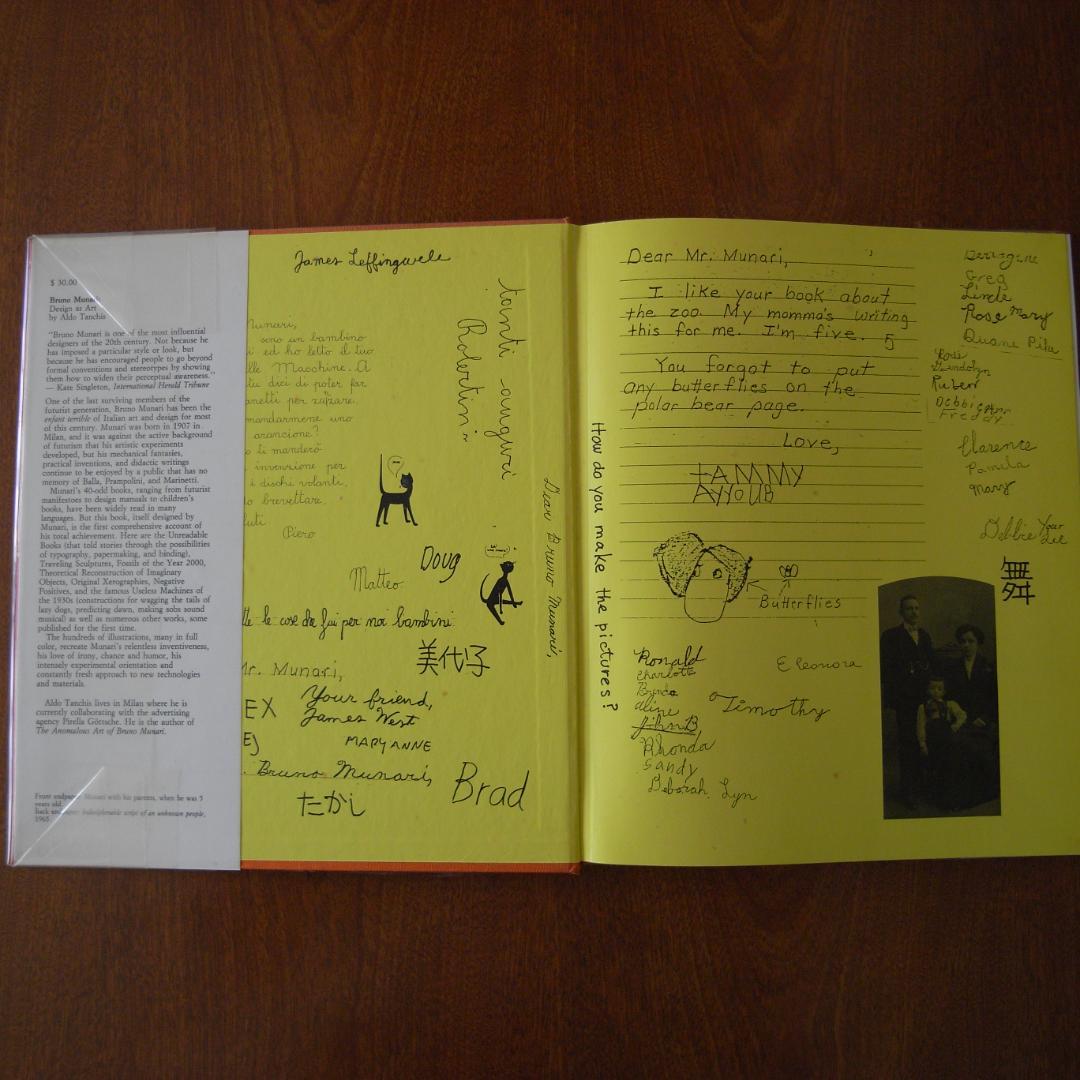 $ 30.00
Bruno Munari
Design as Art
by Aldo Tanchis
"Bruno Munari is one of the most influential
designers of the 20th century. Not because he
has imposed a particular style or look, but
because he has encouraged people to go beyond
formal conventions and stereotypes by showing
them how to widen their perceptual awareness."
— Kate Singleton, International Herald Tribune
One of the last surviving members of the
futurist generation, Bruno Munari has been the
enfant terrible of Italian art and design for most
of this century. Munari was born in 1907 in
Milan, and it was against the active background
of futurism that his artistic experiments
developed, but his mechanical fantasies,
practical inventions, and didactic writings
continue to be enjoyed by a public that has no
memory of Balla, Prampolini, and Marinetti.
Munari's 40-odd books, ranging from futurist
manifestoes to design manuals to children's
books, have been widely read in many
languages. But this book, itself designed by
Munari, is the first comprehensive account of
his total achievement. Here are the Unreadable
Books (that told stories through the possibilities
of typography, papermaking, and binding),
Traveling Sculptures, Fossils of the Year 2000,
Theoretical Reconstruction of Imaginary
Objects, Original Xerographies, Negative
Positives, and the famous Useless Machines of
the 1930s (constructions for wagging the tails of
lazy dogs, predicting dawn, making sobs sound
musical) as well as numerous other works, some
published for the first time.
The hundreds of illustrations, many in full
color, recreate Munari's relentless inventiveness,
his love of irony, chance, and humor, his
intensely experimental orientation and
constantly fresh approach to new technologies
and materials.
Aldo Tanchis lives in Milan where he is
currently collaborating with the advertising
agency Pirella Göttsche. He is the author of
The Anomalous Art of Bruno Munari.
Front endpaper: Munari with his parents, when he was 5
years old.
Back endpaper: Indecipherable script of an unknown people,
1965
James Leffingwele
tanti auguri
Robertin
Munari,
sono un bambino
ed ho letto il tuo
lle Macchine. A
tu dici di poter far
per
mandarmene uno
arancione?
ti manderò
invenzione per
i dischi volanti,
brevettare.
Piero
Doug
Matteo
le cose che fai per noi bambini
美代子
Mr. Munari,
EX
Your friend,
James West
MARYANNE
Bruno Munari,
たかし
Brad
Dear Bruno Munari,
How do you make the pictures?
Dear Mr. Munari,
I like your book about
the zoo. My momma's writing
this for me. I'm five. 5
You forgot to put
any butterflies on the
polar bear page.
Love,
tAMMY
AYYOUB
Butterflies
Ronald
Charlotte
Brenda
Aline
John B
Rhonda
Sandy
Deborah Lyn
Eleonora
Timothy
Greg
Linda
Rose Mary
Duane Pike
Gwendolyn
Ruben
Debbie Ann
Freddy
Clarence
Pamela
Mary
Debbie
舞